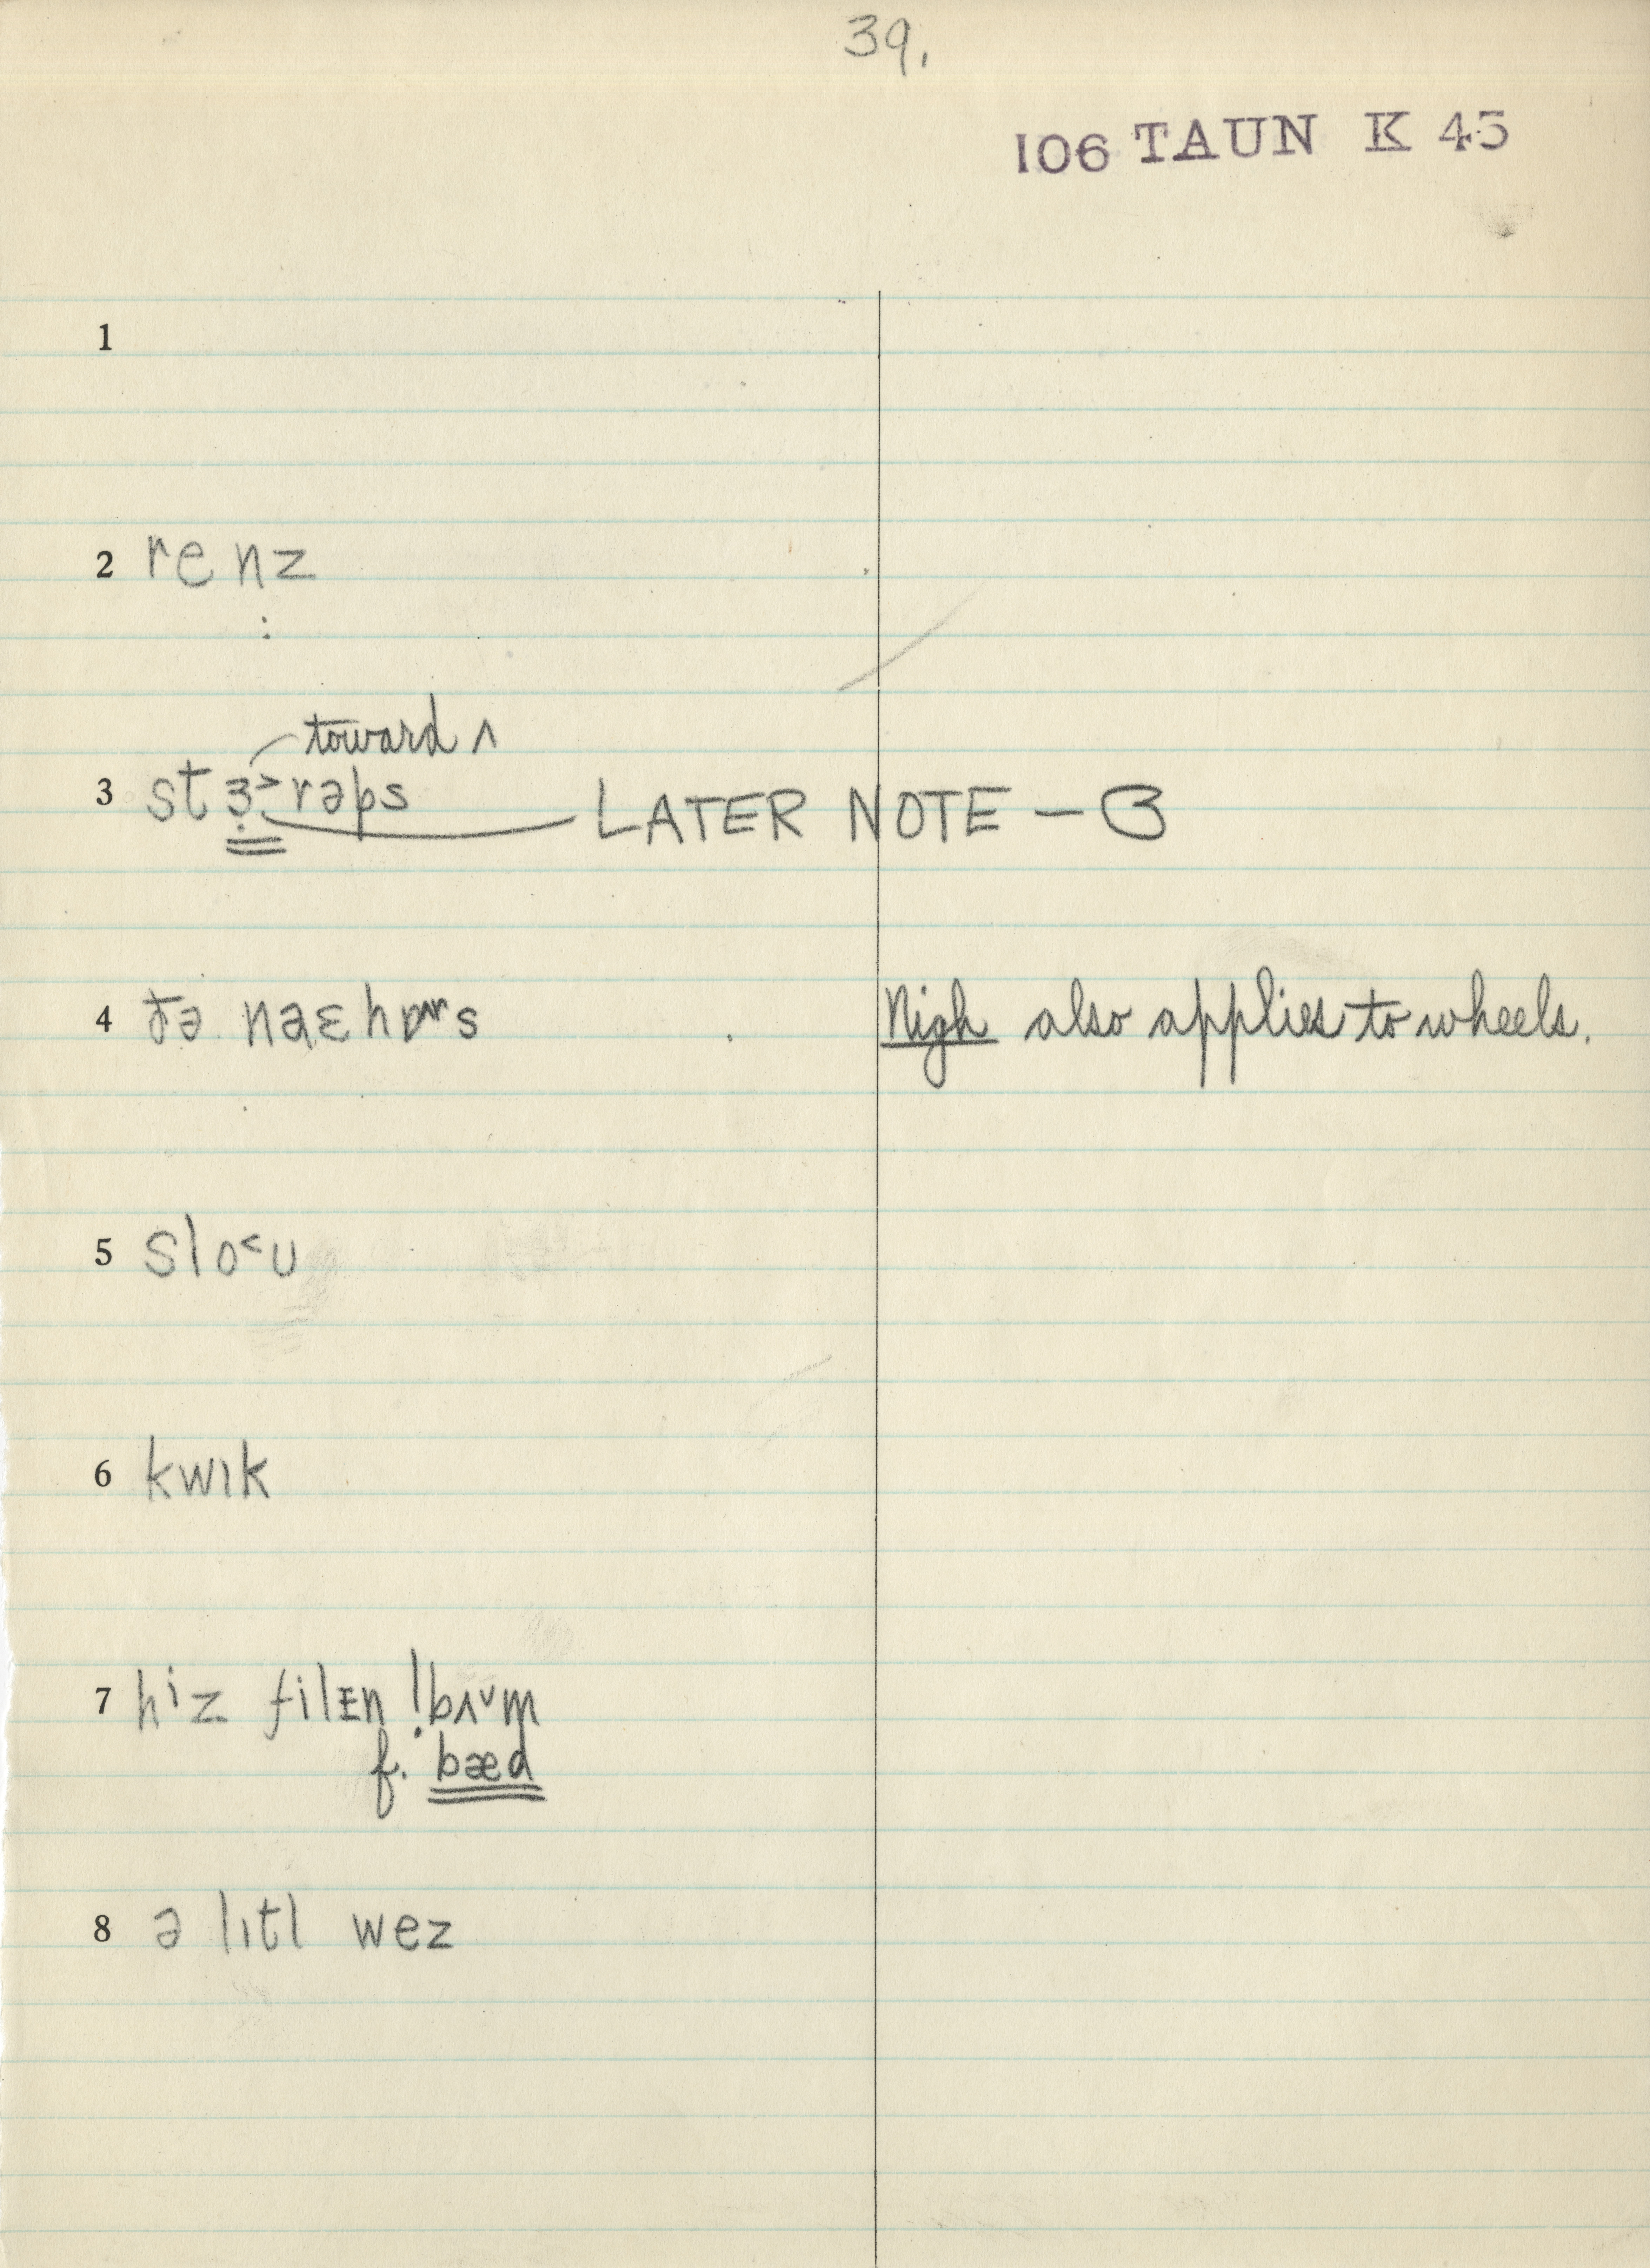 39.
106 TAUN K 45
1
2 renz
:
toward ʌ
3 stɜ˃rəps LATER NOTE – ɞ
4 ðə naɛhɒrs Nigh also applies to wheels.
5 slo˂u
6 kwɪk
7 hiz filɪn !bʌ˅m
f. bæd
8 ə lɪtl wez